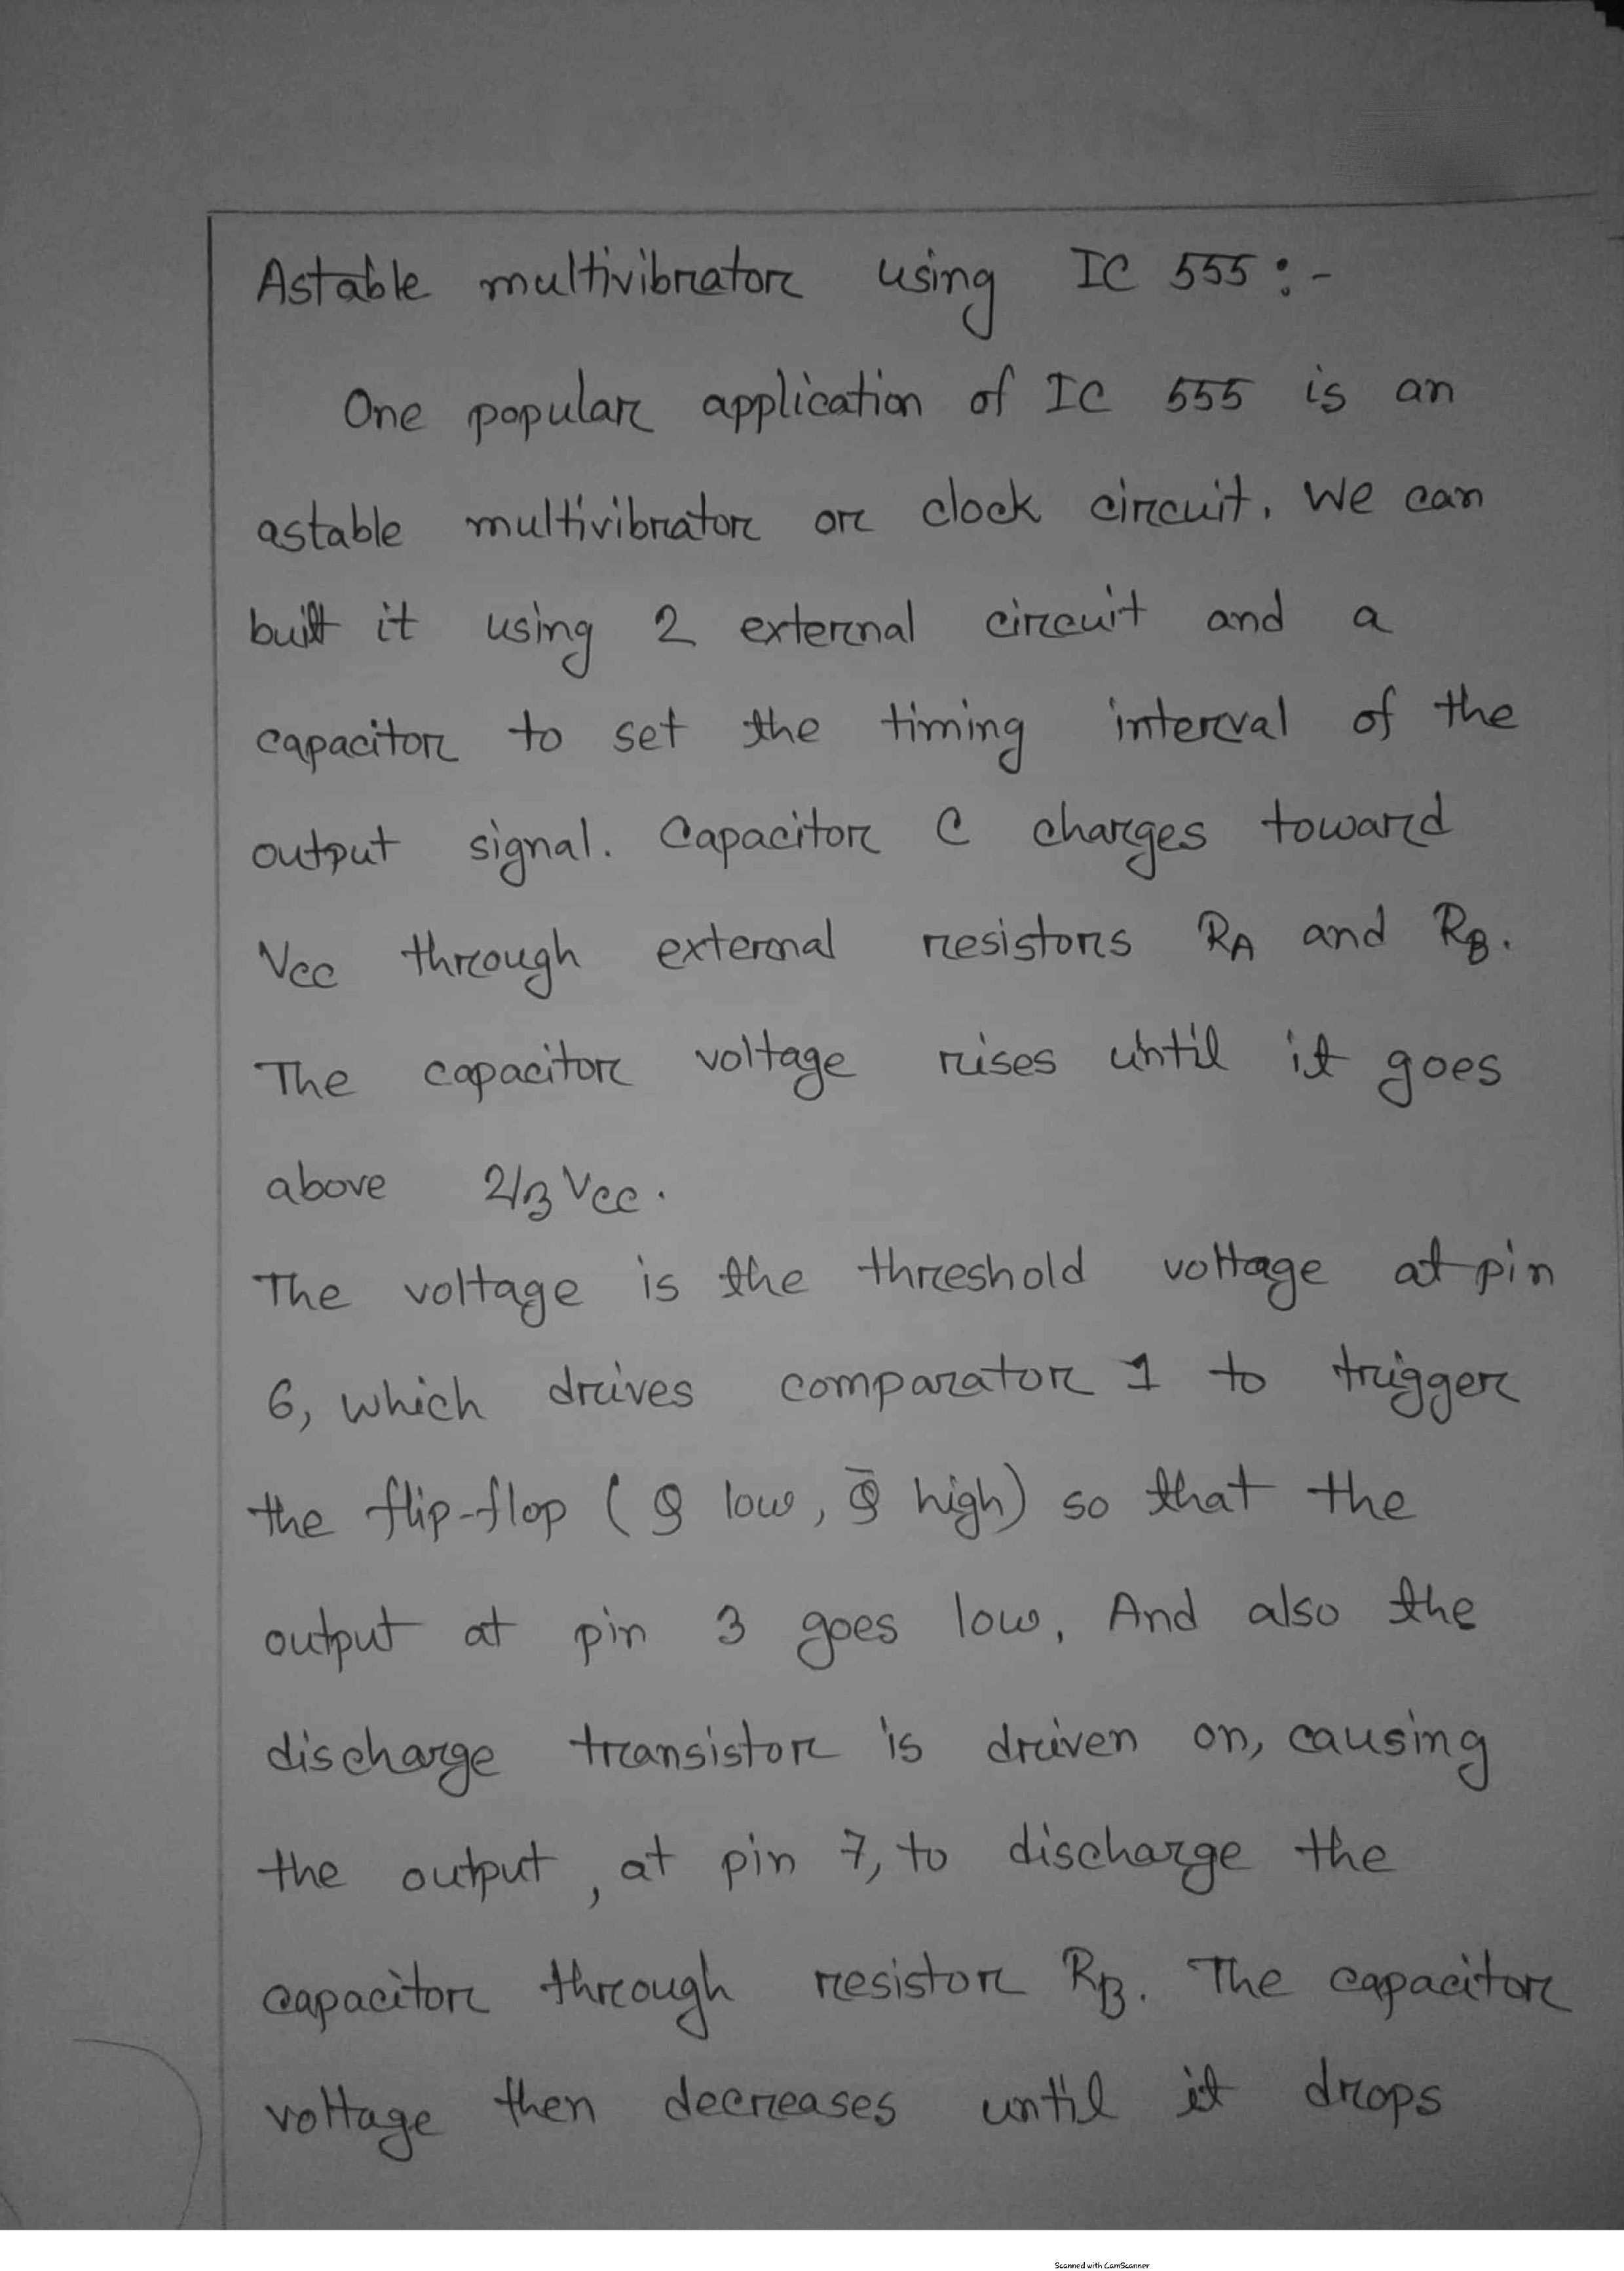 Astable multivibrator using IC 555:-
One popular application of IC 555 is an
astable multivibrator or clock circuit. We can
built it using 2 external circuit and a
capacitor to set the timing interval of the
output signal. Capacitor C charges toward
Vcc through external resistors RA and RB.
The capacitor voltage rises until it goes
above 2/3 Vcc.
The voltage is the threshold voltage at pin
6, which drives comparator 1 to trigger
the flip-flop (Q low, Q̄ high) so that the
output at pin 3 goes low. And also the
discharge transistor is driven on, causing
the output, at pin 7, to discharge the
capacitor through resistor RB. The capacitor
voltage then decreases until it drops
Scanned with CamScanner